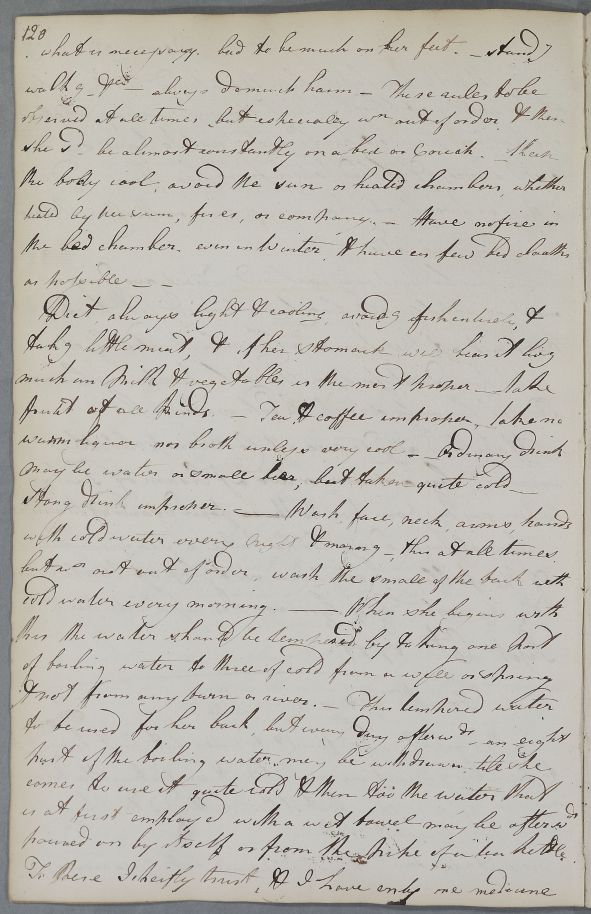 128
what is necessary. bad to be much on her feet. – stand^g
walk^g &c – always do much harm – These rules to be
observed at all times but especially wn out of order, & then
she sd be almost constantly on a bed or Couch. – Keep
the body cool, avoid the sun or heated chambers, whether
heated by the sun, fires, or company. – Have no fire in
the bed chamber even in Winter, & have as few bed cloaths
as possible – –
Diet always light & cooling, avoid^g fish entirely, &
tak^g little meat, & if her stomach will bear it living
much on Milk & vegetables is the most proper – take
fruit of all kinds. – Tea & coffee improper, take no
warm liquor nor broth unless very cool – Ordinary drink
may be water or small beer, but taken quite cold –
Strong drink improper. – Wash face, neck, arms, hands
with cold water every night & morning – this at all times
but wn not out of order, wash the small of the back with
cold water every morning. – When she begins with
this the water should be tempered by taking one part
of boiling water to three of cold from a well or spring
& not from any burn or river. – This tempered water
to be used for her back, but every day afterwds an eight
part of the boiling water may be withdrawn till she
comes to use it quite cold & then too the water that
is at first employed with a wet towel may be afterwds
poured on by itself or from the pipe of a tea kettle.
To these I chiefly trust, & I have only one medicine